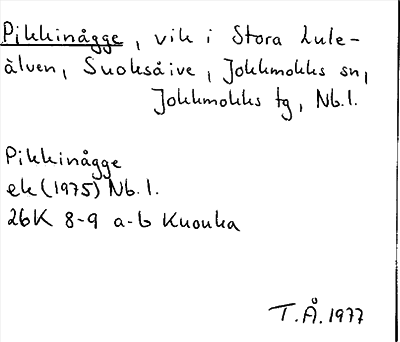 Pikkinågge, vik i Stora Lule-
älven, Suoksåive, Jokkmokks sn,
Jokkmokks tg, Nb.l.
Pikkinågge
ek (1975) Nb.l.
26K 8-9 a-b Kuouka
T.Å. 1977